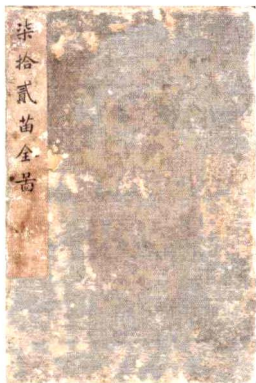 柒拾貳苗全啚